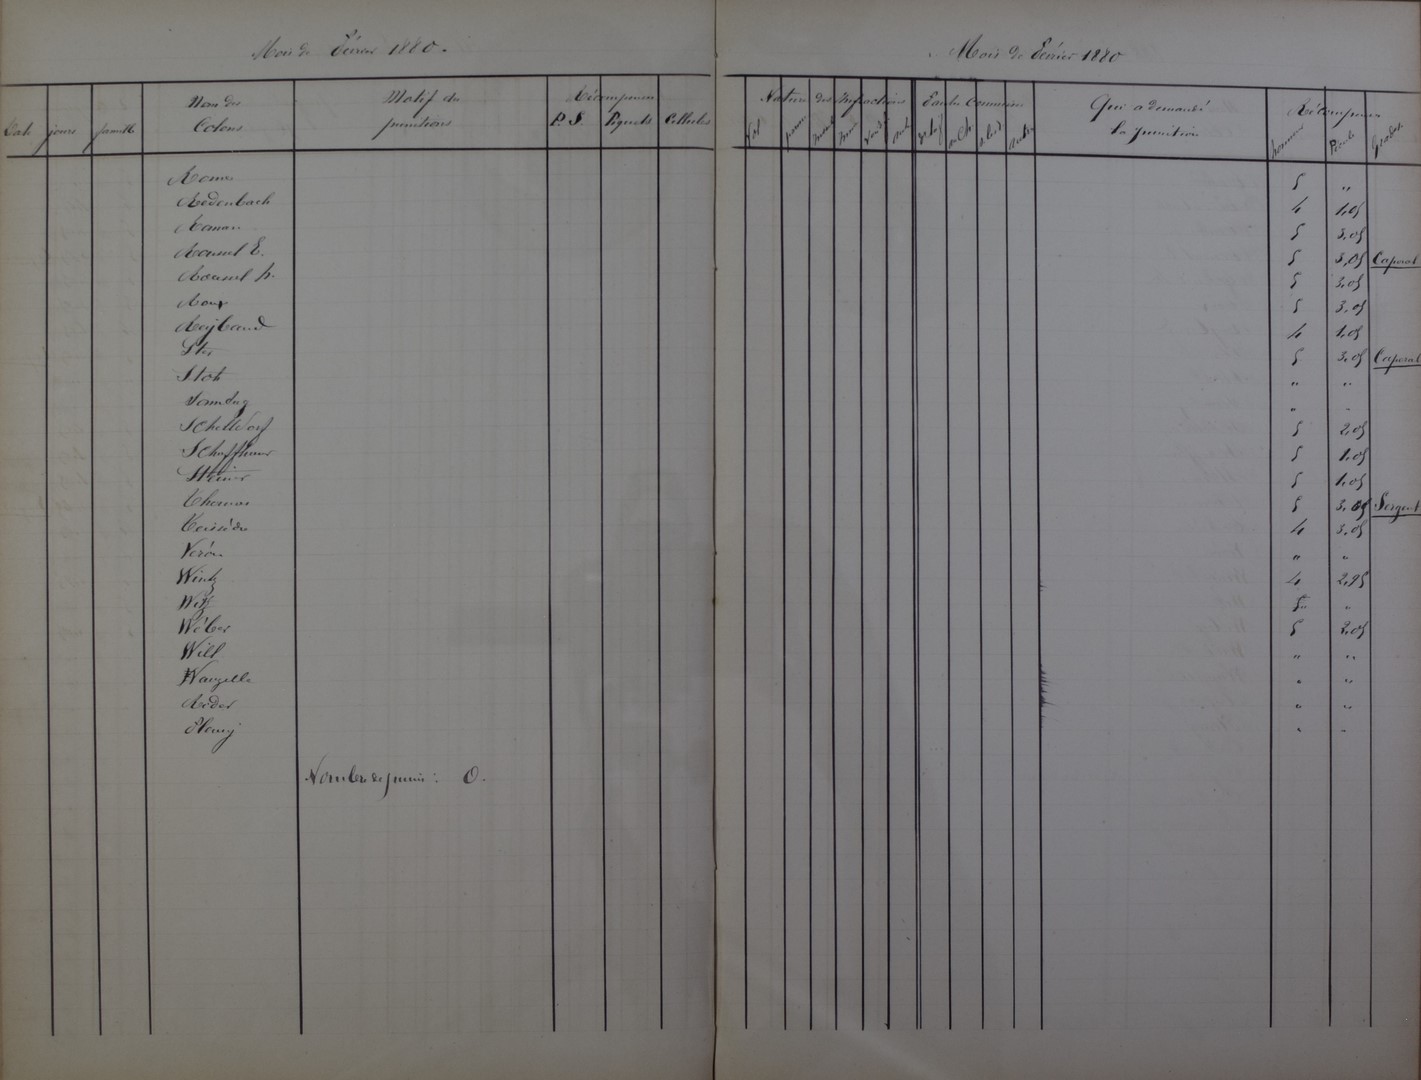 Mois de Février 1880.
Mois de Février 1880
Date jours famille Nom des Colons Motif des punitions Récompenses P. S. Piquets Cellules
Nature des Infractions Fautes Commises Qui a demandé la punition Récompenses
Vol autres honneur Grades
5 "
Redenbach 4 1,05
Roman 5 3,05
Roussel E. 5 3,05 Caporal
Roussel h. 5 3,05
Roux 5 3.05
Reybaud 4 1.05
5 3.05 Caporal
Stoh " "
" "
Schelldorf 5 2,05
Schaffhuser 5 1.05
Steiner 5 1.05
Thomas 5 3.05 Sergent
Teissèdre 4 3.05
Véron " "
Wintz 4 2,95
Witz "
Wéber 5 2,05
Will " "
Wargelle " "
Réder " "
" "
Nombre de punis : 0.